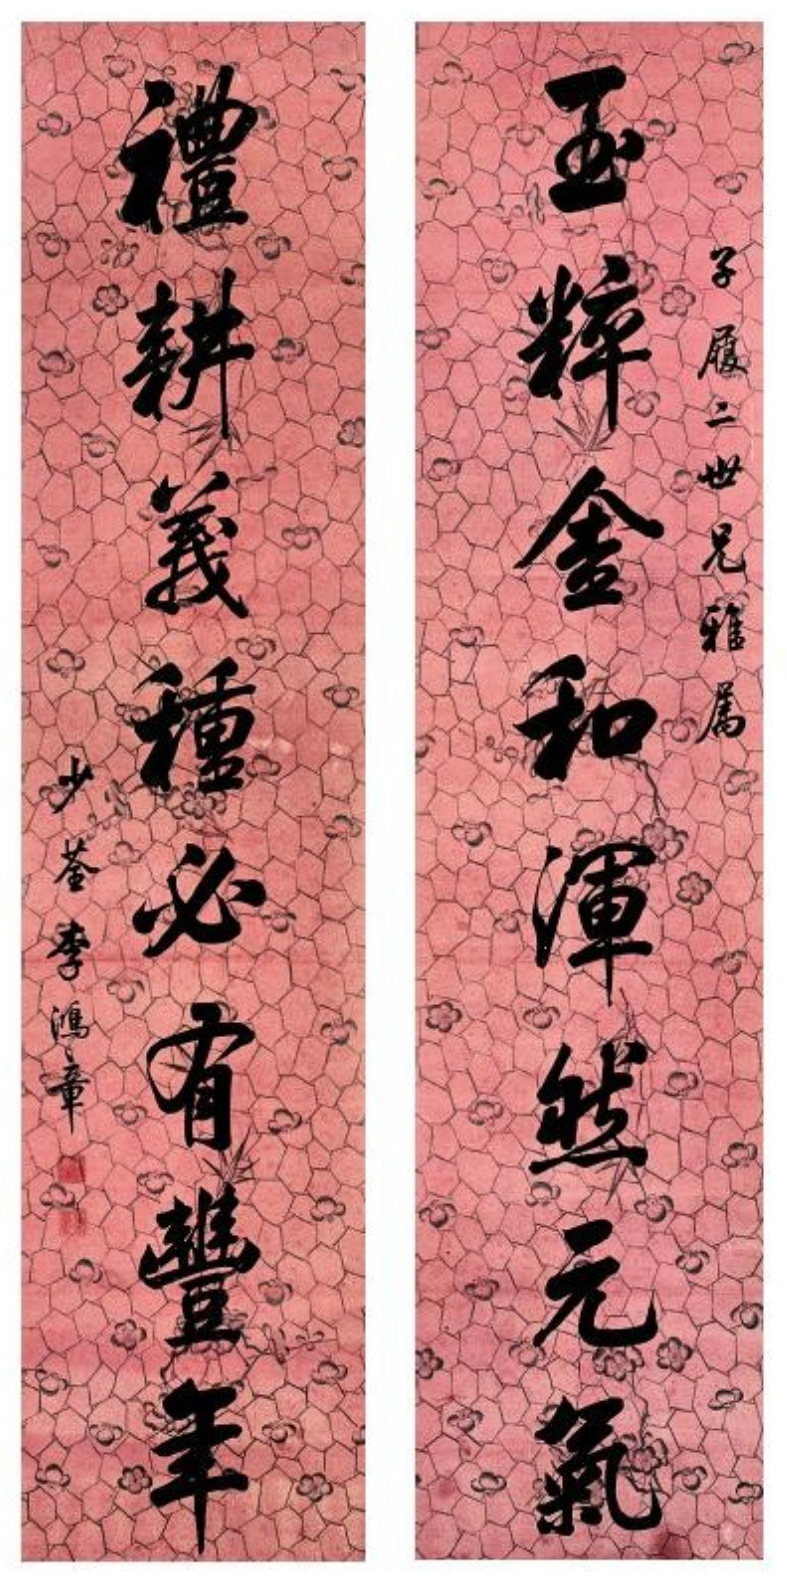 子履二世兄雅属
玉粹金和渾然元氣
禮耕義種必有豐年
少荃李鴻章